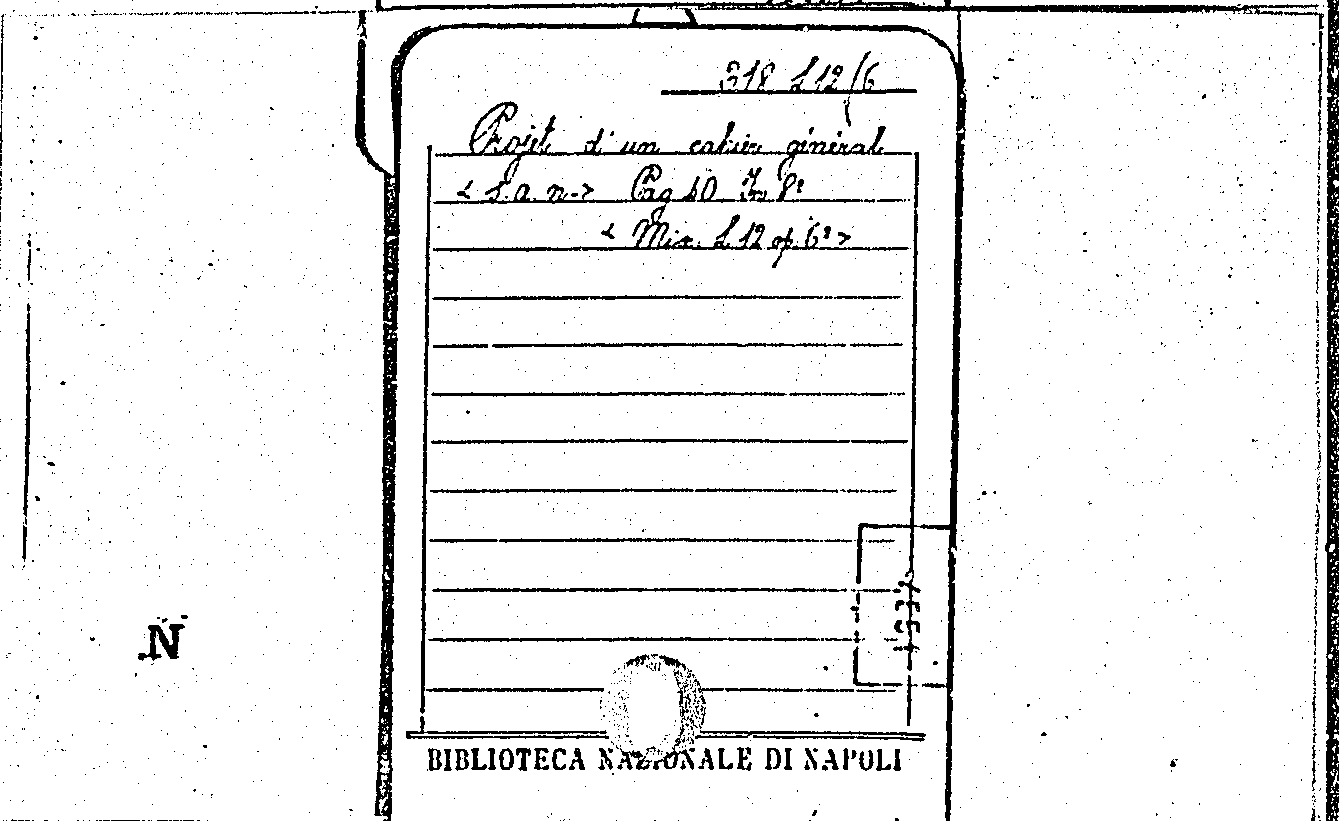 318 L 12/6
Projet d'un cahier général
< s. a. n. > Pag 40 In 8º
< Mix. L 12 op. 6º >
N
BIBLIOTECA NAZIONALE DI NAPOLI